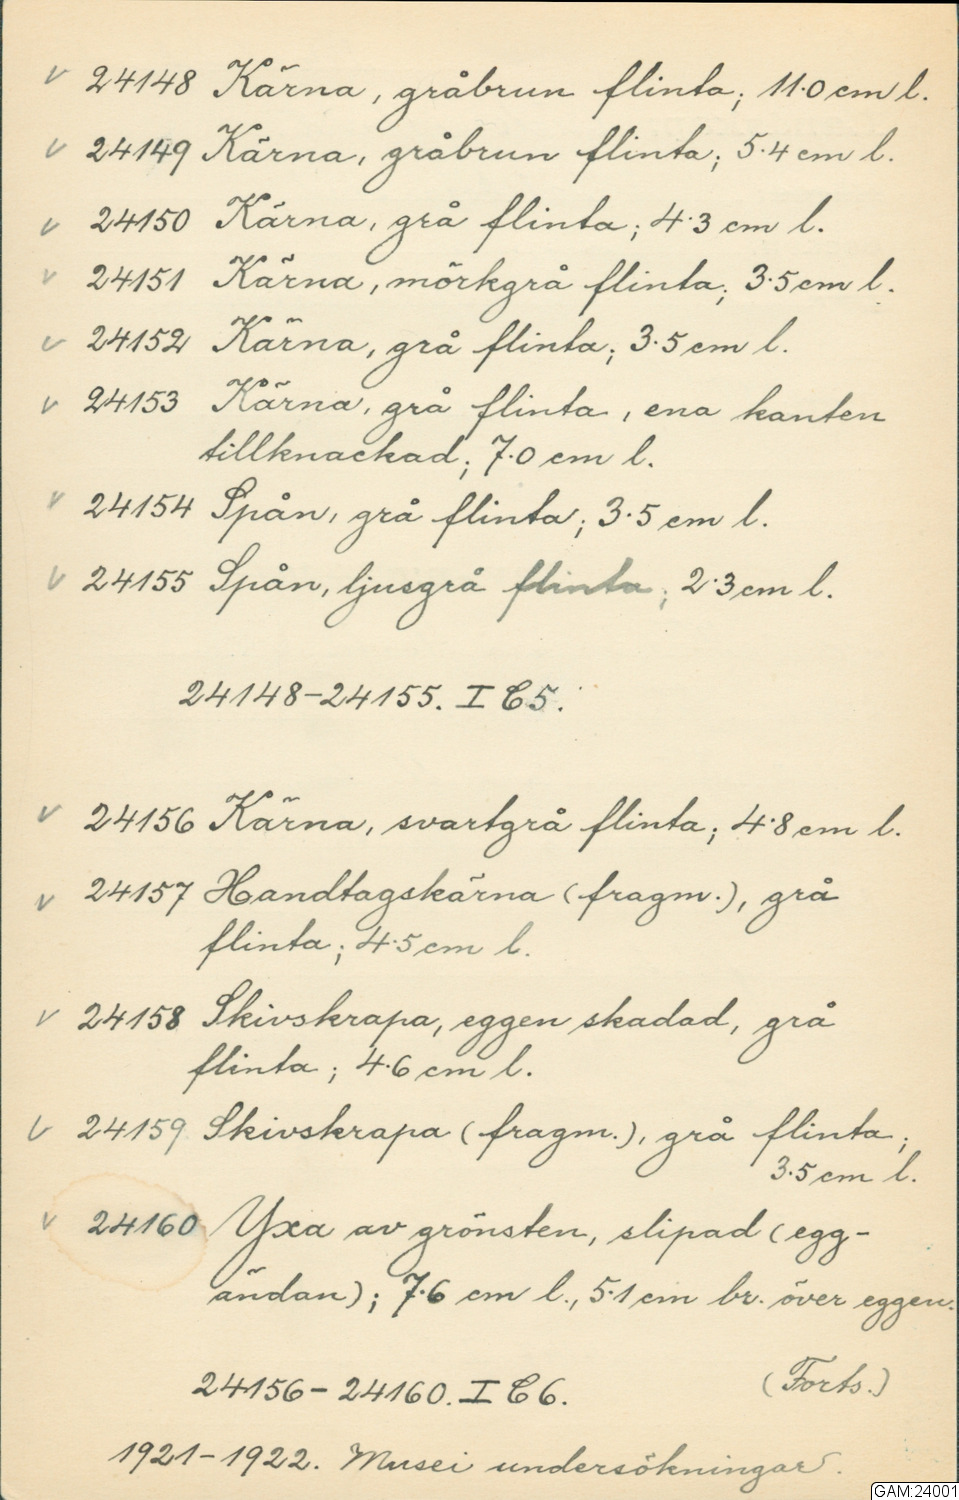 v 24148 Kärna, gråbrun flinta; 11.0 cm l.
v 24149 Kärna, gråbrun flinta; 5.4 cm l.
v 24150 Kärna, grå flinta; 4.3 cm l.
v 24151 Kärna, mörkgrå flinta; 3.5 cm l.
v 24152 Kärna, grå flinta; 3.5 cm l.
v 24153 Kärna, grå flinta, ena kanten
tillknackad; 7.0 cm l.
v 24154 Spån, grå flinta; 3.5 cm l.
v 24155 Spån, ljusgrå flinta; 2.3 cm l.
24148-24155. I C5.
v 24156 Kärna, svartgrå flinta; 4.8 cm l.
v 24157 Handtagskärna (fragm.), grå
flinta; 4.5 cm l.
v 24158 Skivskrapa, eggen skadad, grå
flinta; 4.6 cm l.
v 24159 Skivskrapa (fragm.), grå flinta;
3.5 cm l.
v 24160 Yxa av grönsten, slipad (egg-
ändan); 7.6 cm l., 5.1 cm br. över eggen.
24156-24160. I C6. (Forts.)
1921-1922. Musei undersökningar.
GAM:24001